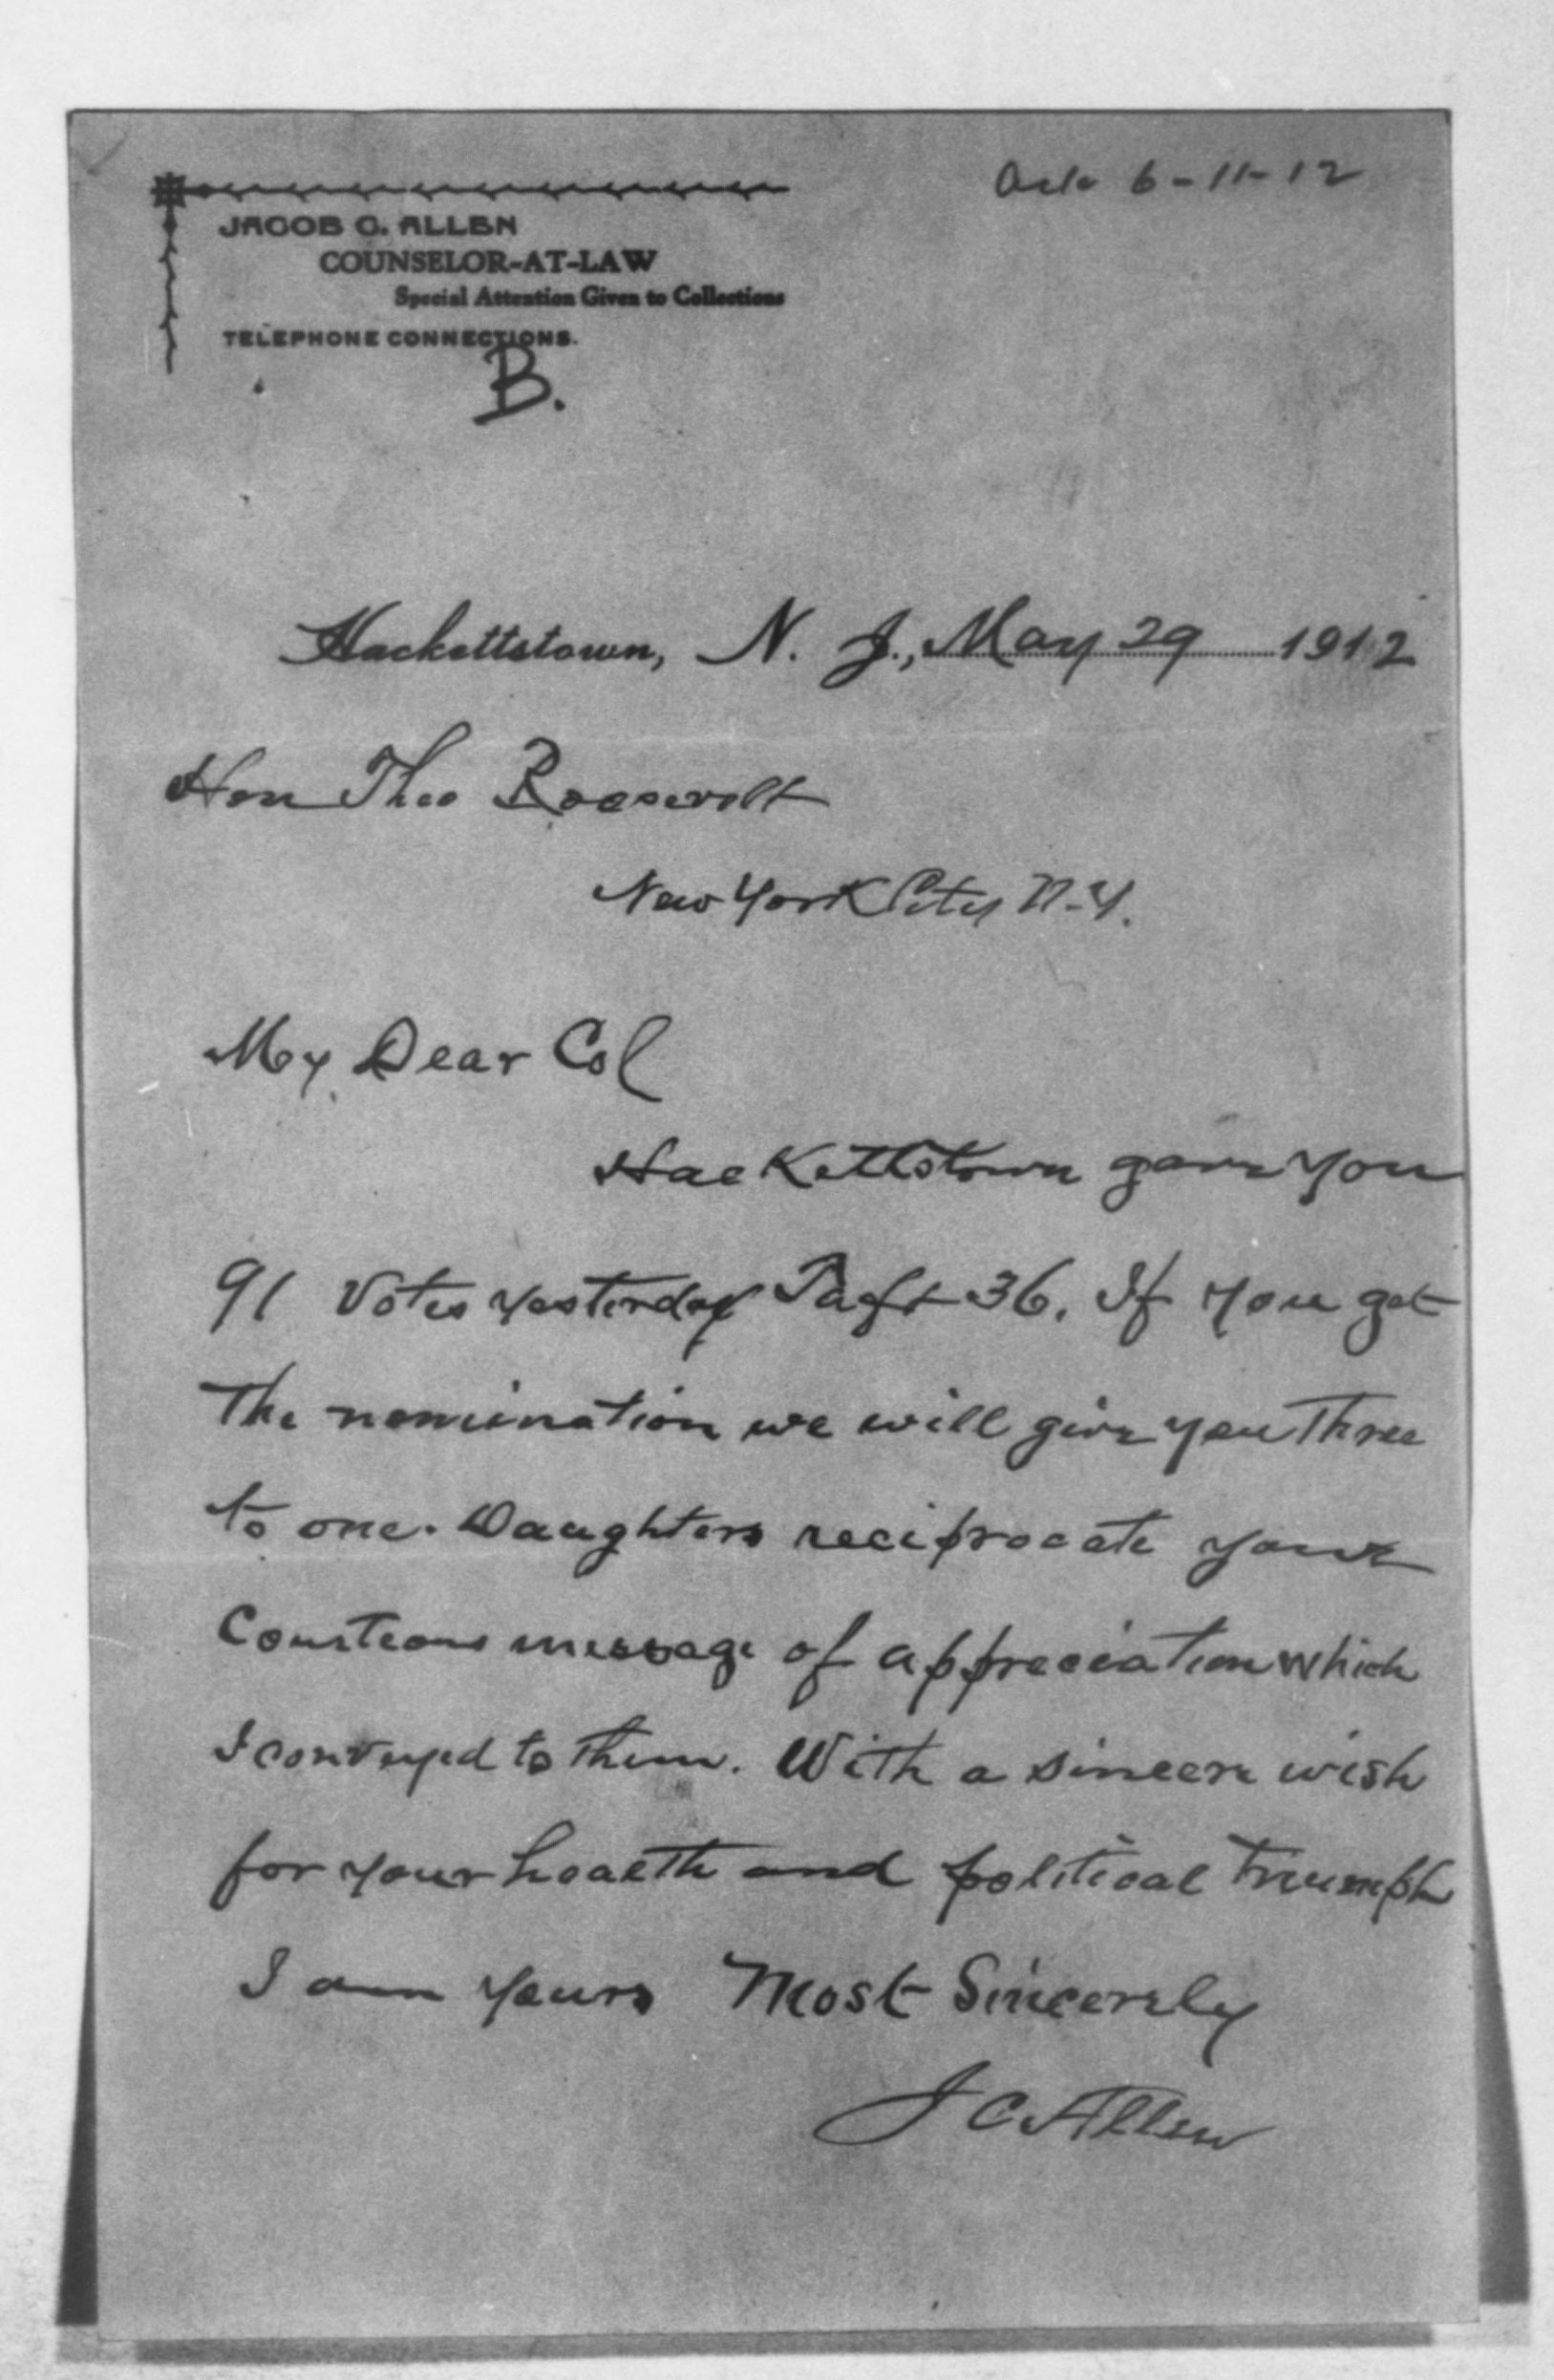 Ack 6-11-12
JACOB C. ALLEN
COUNSELOR-AT-LAW
Special Attention Given to Collections
TELEPHONE CONNECTIONS.
B.
Hackettstown, N. J., May 29 1912
Hon Theo Roosevelt
New York City N.Y.
My Dear Col
Hackettstown gave you
91 votes yesterday Taft 36. If you get
the nomination we will give you three
to one. Daughters reciprocate your
Courteous message of appreciation which
I conveyed to them. With a sincere wish
for your health and political triumph
I am yours Most Sincerely
J C Allen